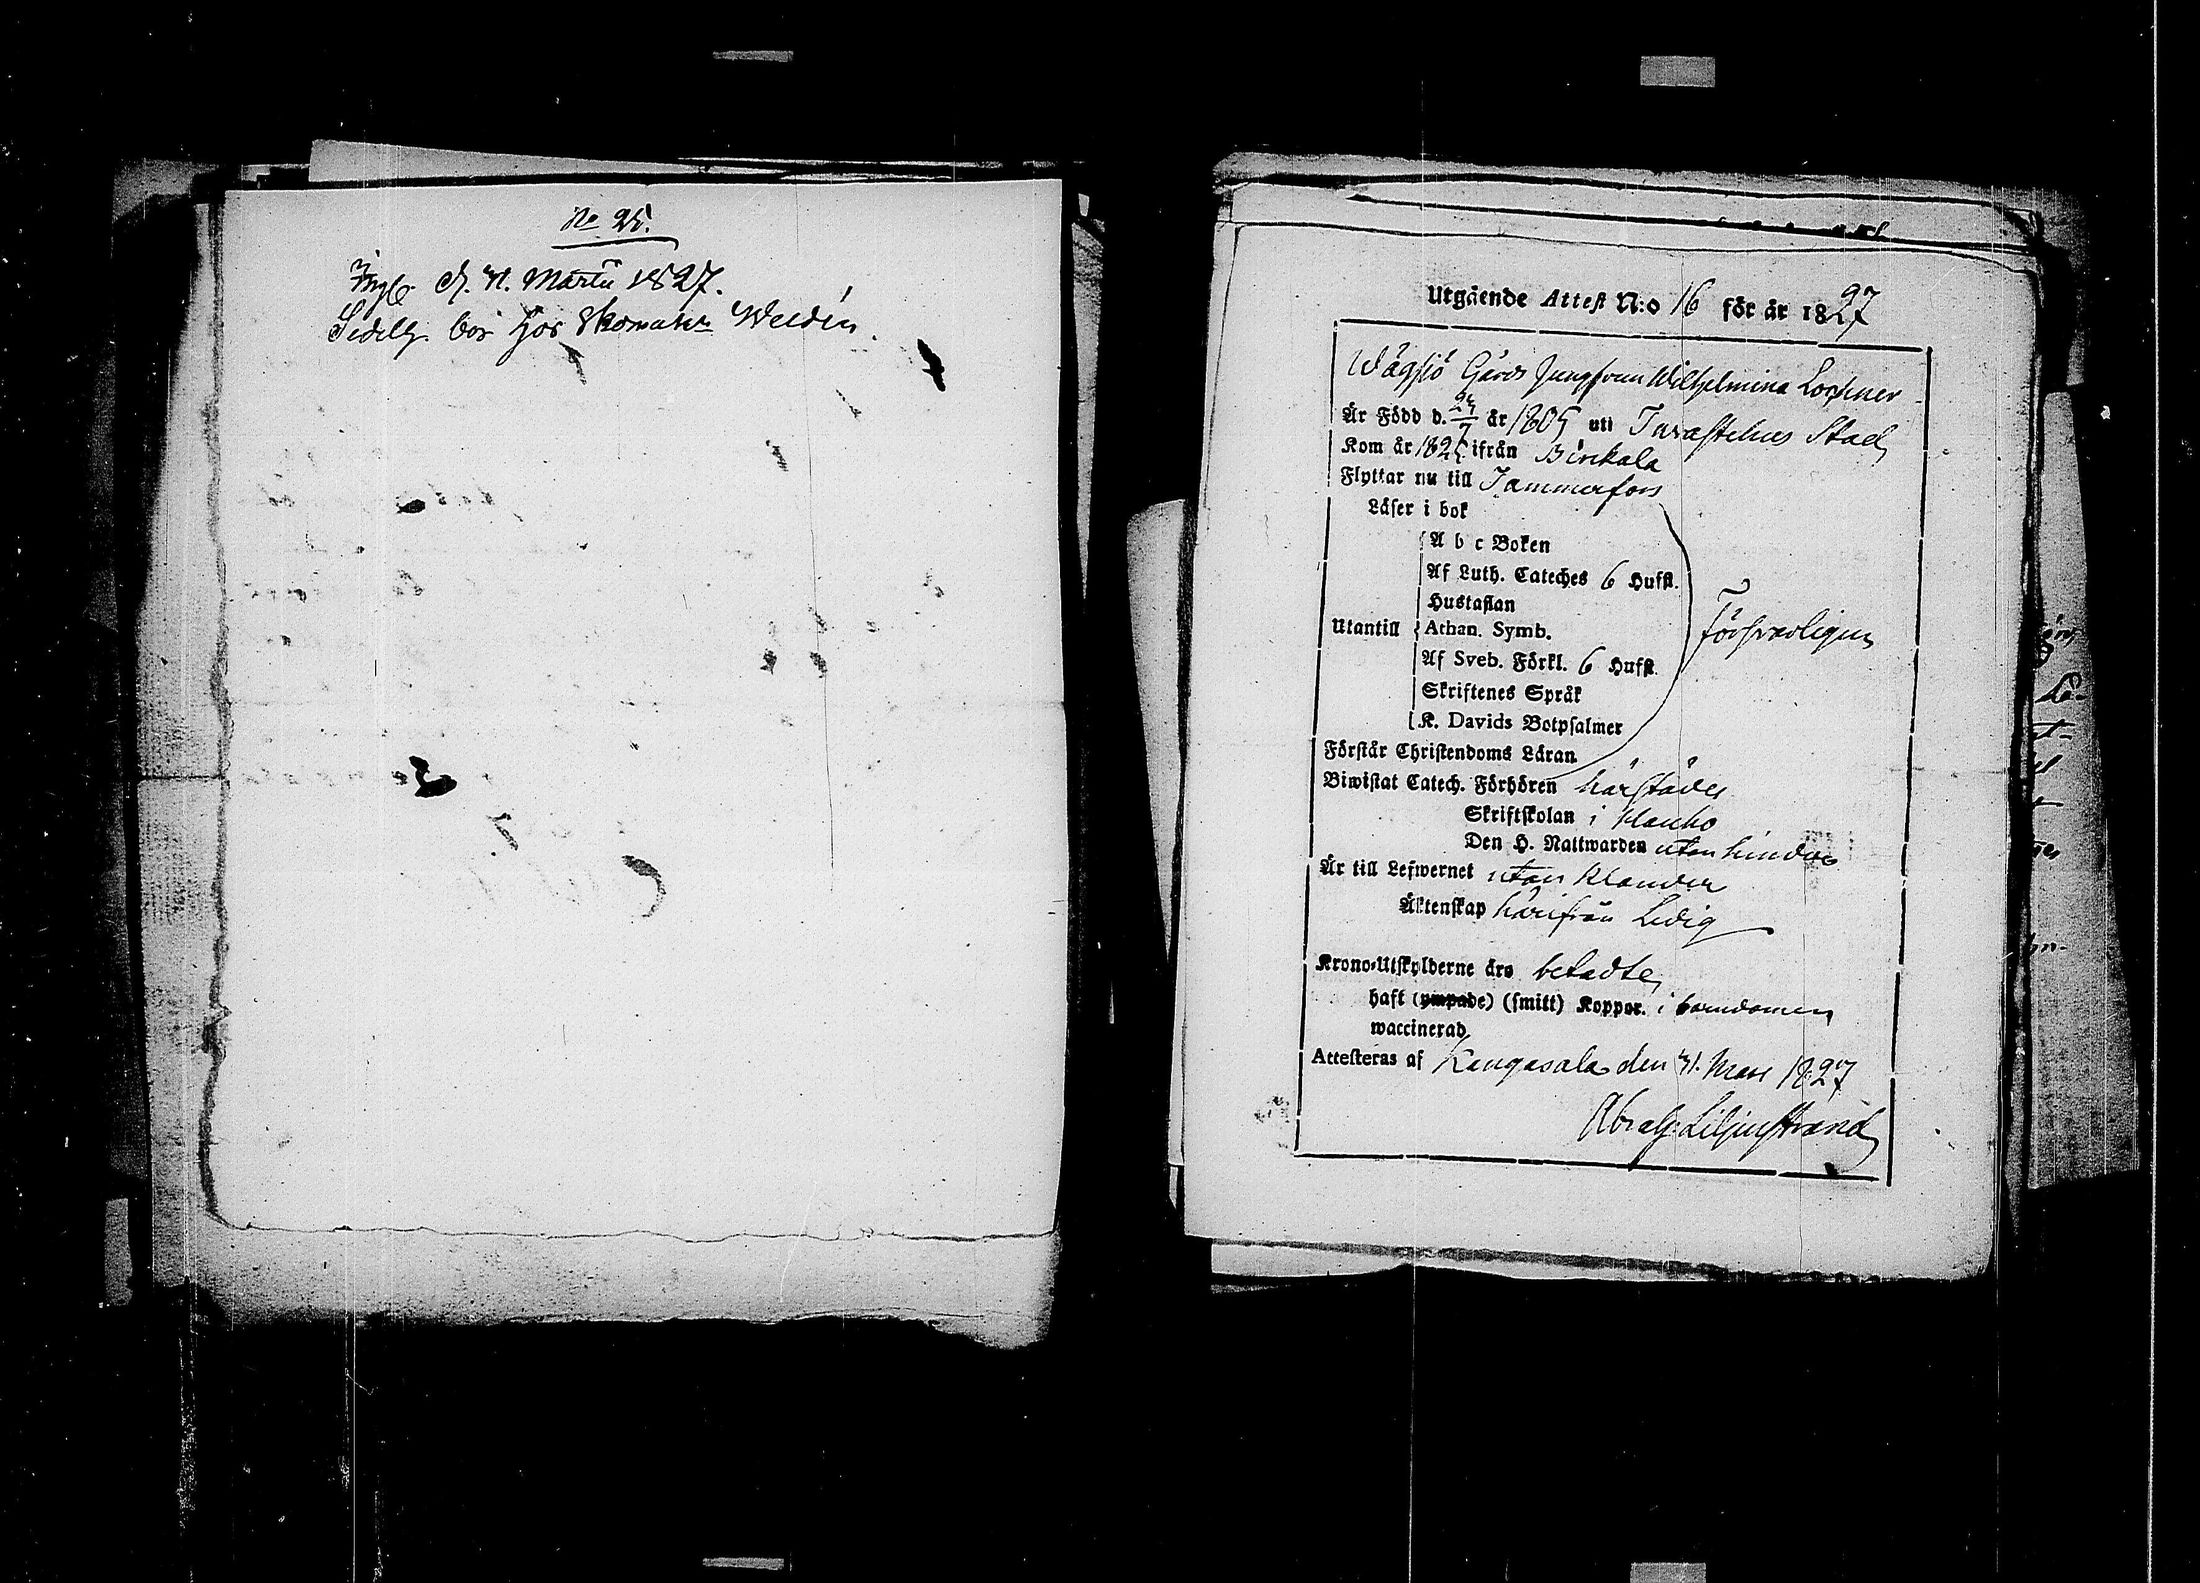 No 25.
Ingb. d. 31. Martii 1827.
Sedelh. bör hos Skomak: Weidén.
Utgående Attest N:o 16 för år 1827
Wägsjö Gårds Jungfrun Wilhelmina Lochner
Är Född d. 24/7 år 1805 uti Tavastehus Stad
Kom år 1825 ifrån Birkala
Flyttar nu till Tammerfors
Läser i bok
A b c Boken
Af Luth. Cateches 6 Hufst.
Hustaflan
Utantill Athan. Symb.
Försvarligen
Af Sveb. Förkl. 6 Hufst.
Skriftenes Språk
K. Davids Botpsalmer
Förstår Christendoms Läran
Biwistat Catech. Förhören härstädes
Skriftskolan i Hauho
Den H. Nattwarden utan hinder
Är till Lefwernet utan klander
Äktenskap härifrån Ledig
Krono-Utskylderne äro betadte
haft (ympade) (smitt) Koppor. i barndomen
waccinerad
Attesteras af Kangasala den 31. Mars 1827
Abrah: Liljestrand